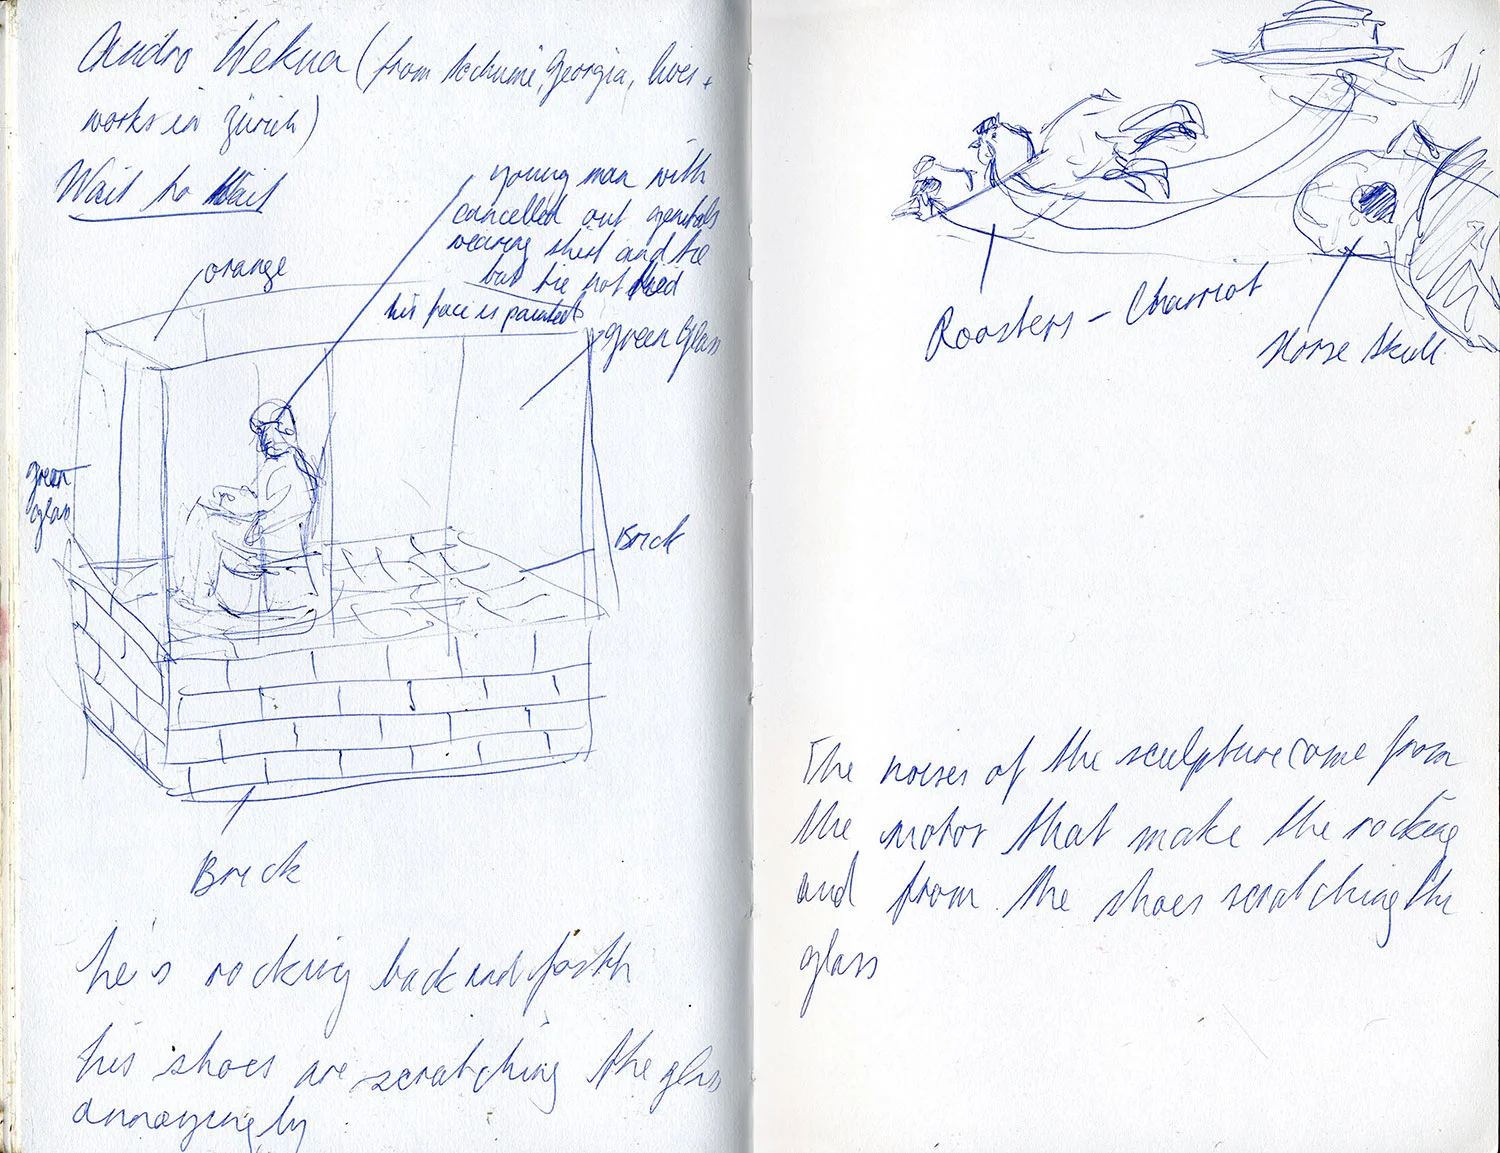 Andro Wekua (from Sochumi, Georgia, lives +
works in Zürich)
Wait to Wait
young man with
cancelled out genitals
wearing shirt and tie
but tie not tied
his face is painted
orange
green glass
green
glass
Brick
Brick
he's rocking back and forth
his shoes are scratching the glass
annoyingly
Roosters - Charriot
Horse Skull
The noises of the sculpture come from
the motor that make the rocking
and from the shoes scratching the
glass